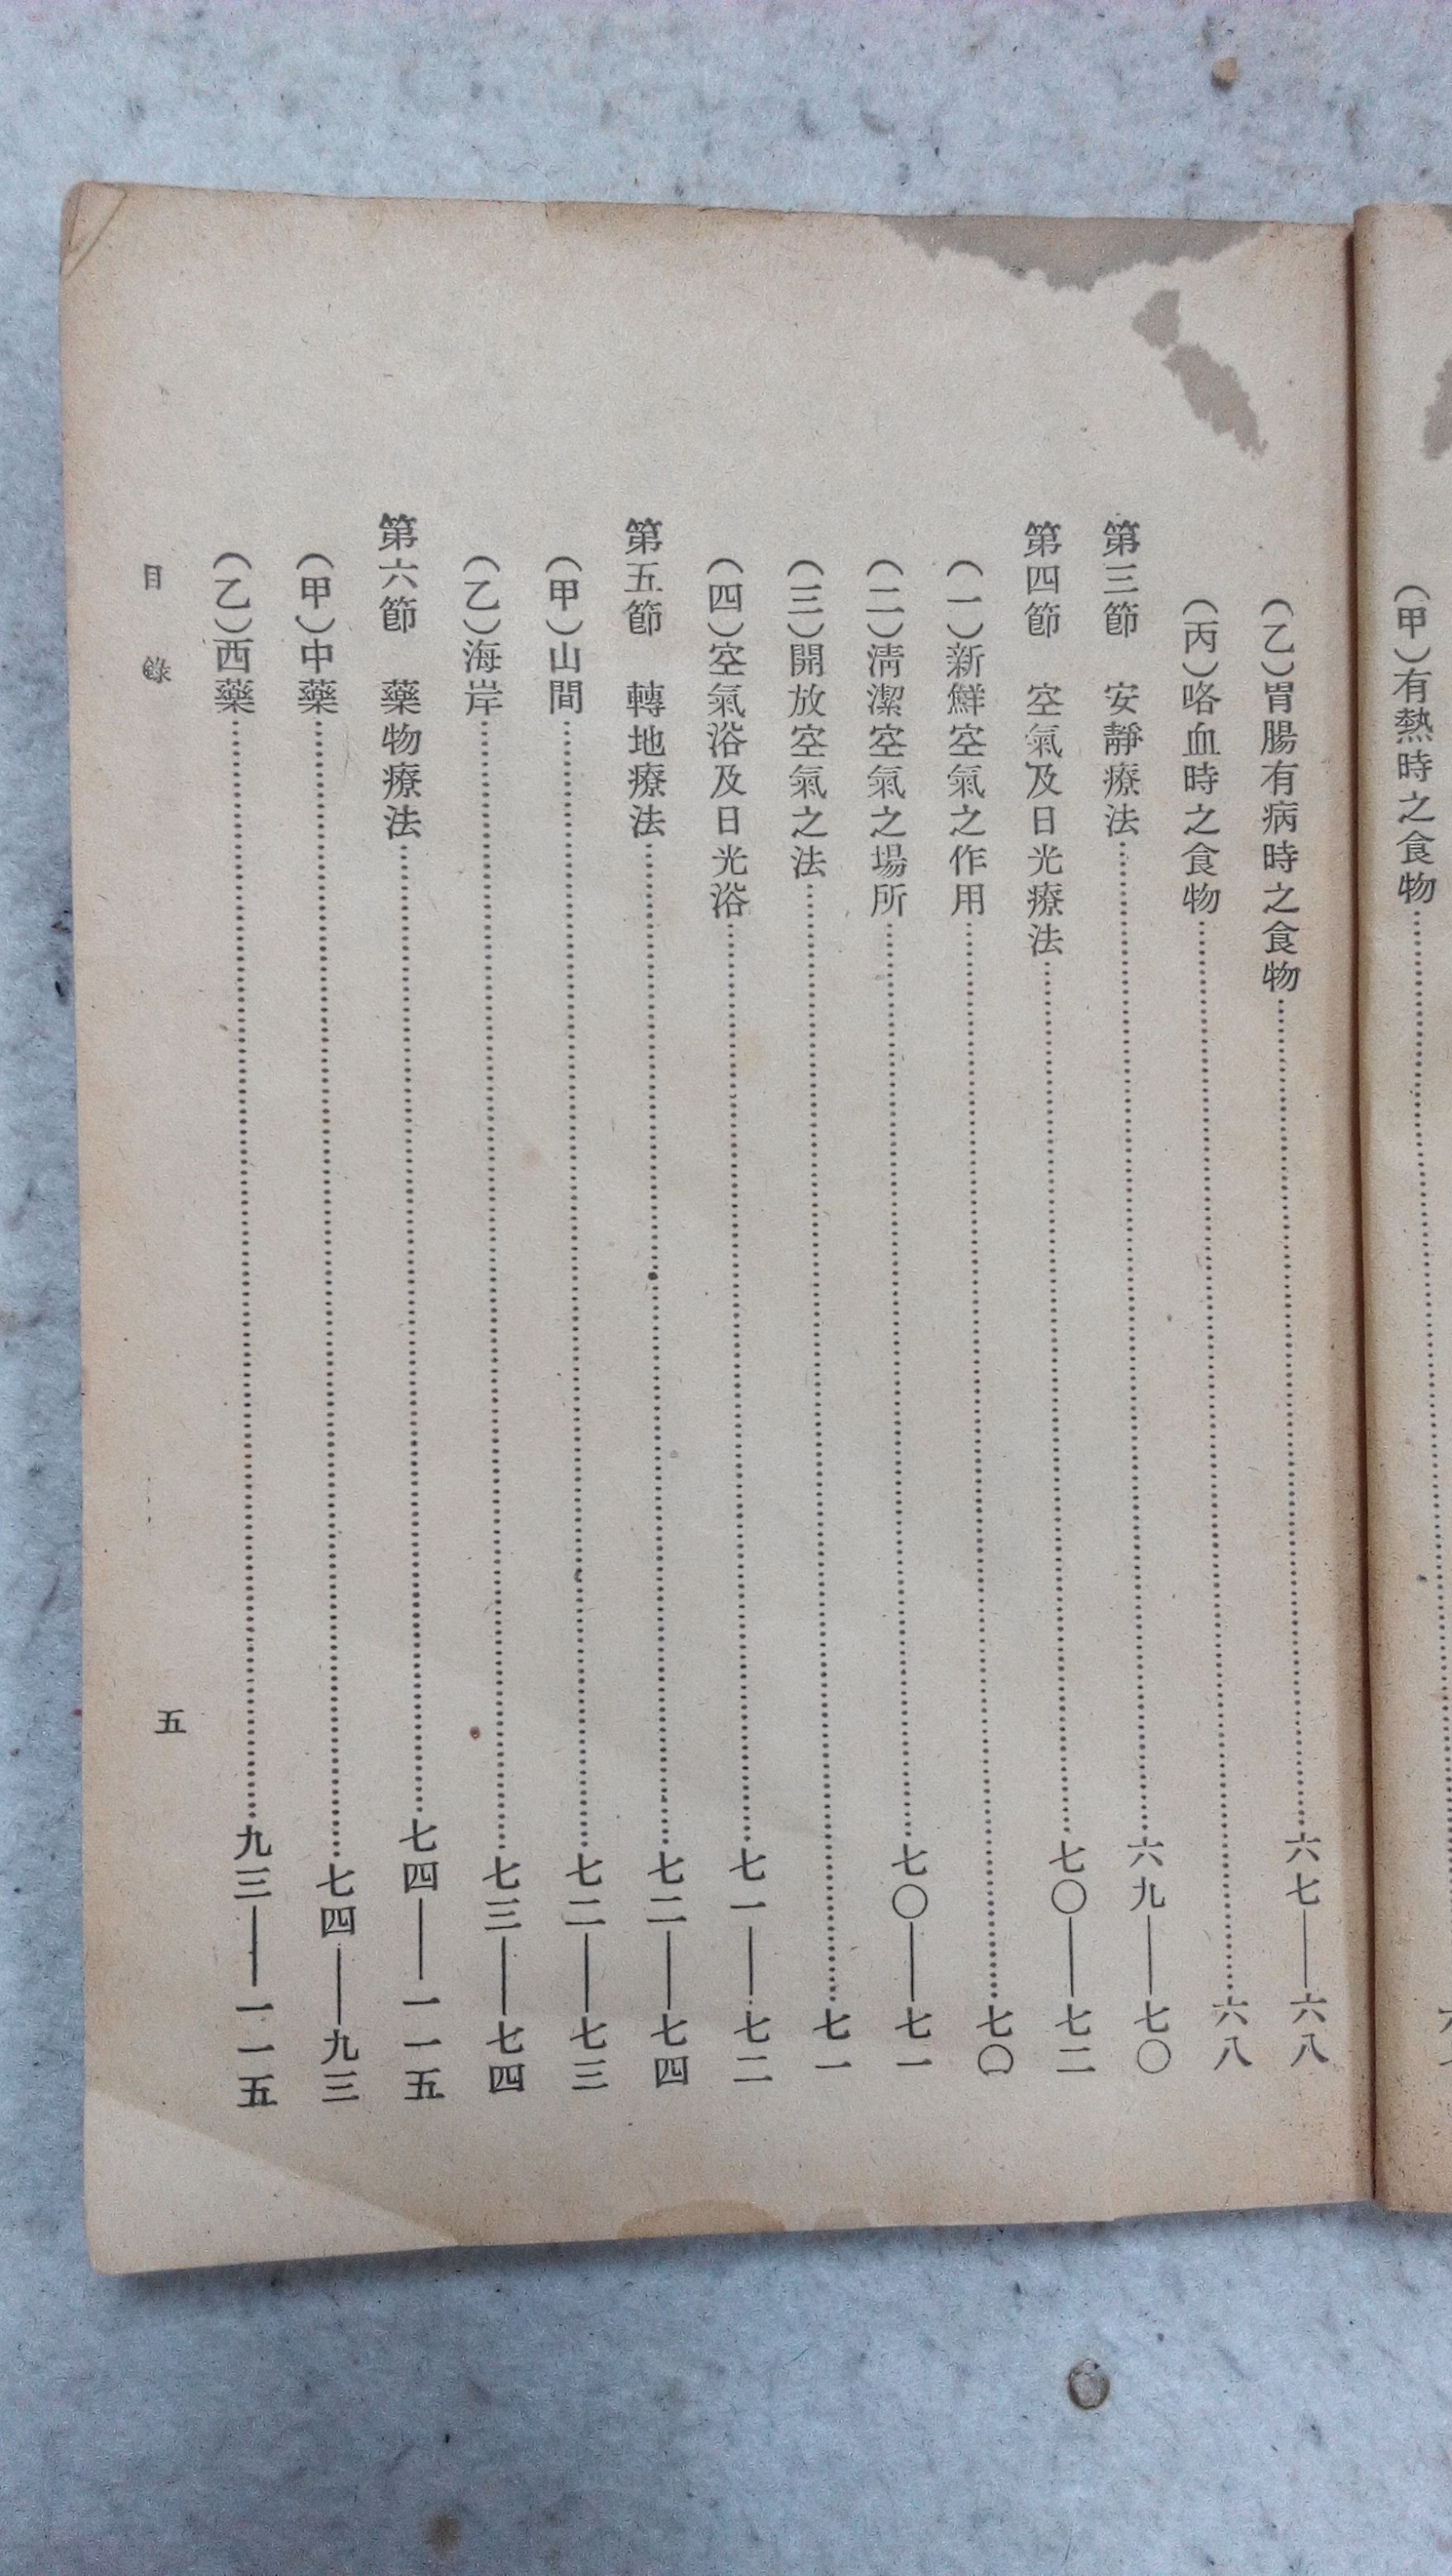 （甲）有熱時之食物
（乙）胃腸有病時之食物……六七——六八
（丙）咯血時之食物……六八
第三節　安靜療法……六九——七〇
第四節　空氣及日光療法……七〇——七二
（一）新鮮空氣之作用……七〇
（二）清潔空氣之場所……七〇——七一
（三）開放空氣之法……七一
（四）空氣浴及日光浴……七一——七二
第五節　轉地療法……七二——七四
（甲）山間……七二——七三
（乙）海岸……七三——七四
第六節　藥物療法……七四——一一五
（甲）中藥……七四——九三
（乙）西藥……九三——一一五
目　錄　五